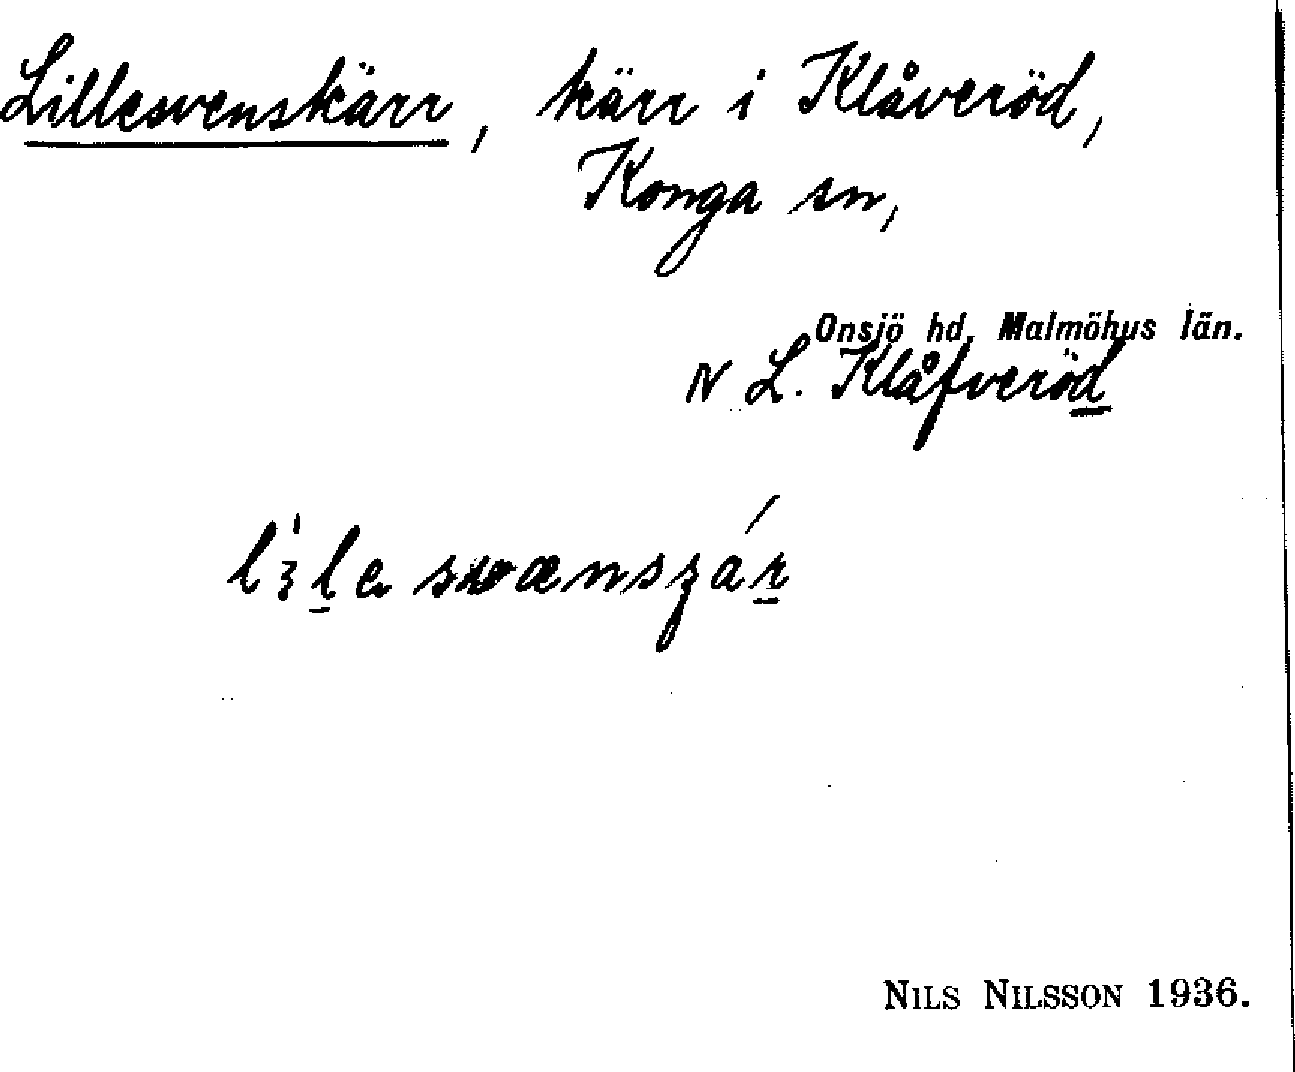 Lillesvenskärr, kärr i Klåveröd,
Konga sn,
Onsjö hd, Malmöhus län.
N L. Klåfveröd
NILS NILSSON 1936.